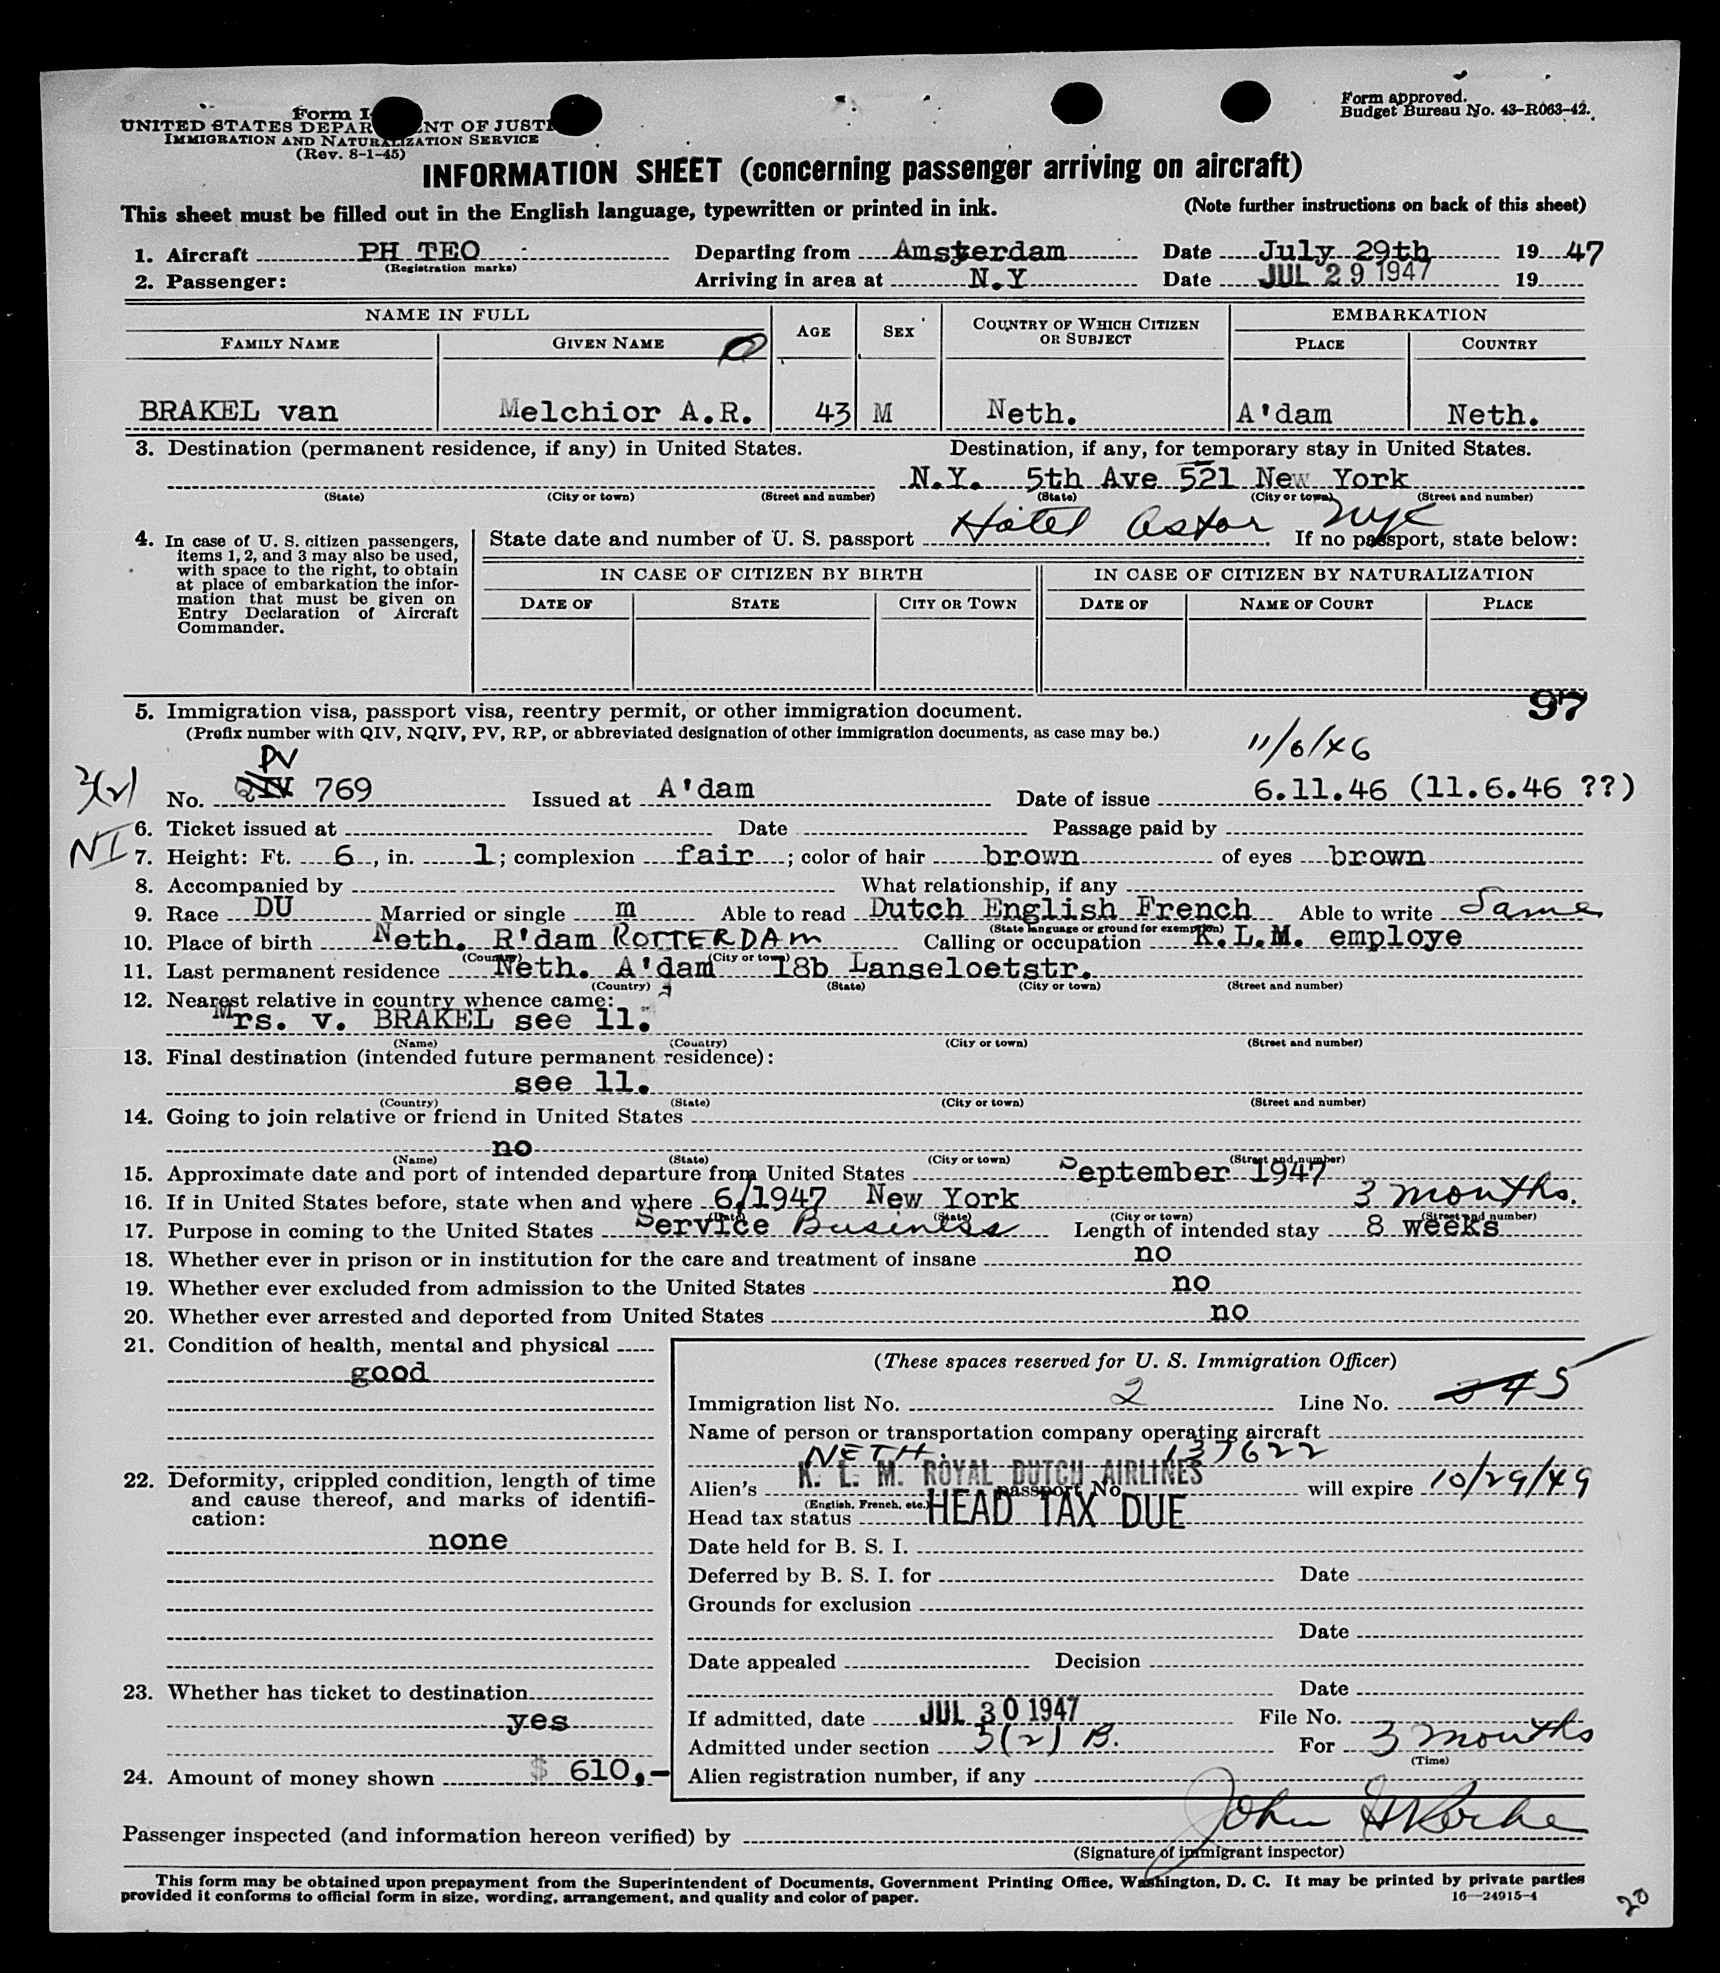 Form I-
Form approved.
UNITED STATES DEPAR NT OF JUST
Budget Bureau No. 43-R063-42.
IMMIGRATION AND NATURALIZATION SERVICE
(Rev. 8-1-45)
INFORMATION SHEET (concerning passenger arriving on aircraft)
This sheet must be filled out in the English language, typewritten or printed in ink. (Note further instructions on back of this sheet)
1. Aircraft PH TEO Departing from Amsterdam Date July 29th 1947
(Registration marks)
2. Passenger: Arriving in area at N.Y Date JUL 29 1947 19
NAME IN FULL AGE SEX COUNTRY OF WHICH CITIZEN OR SUBJECT EMBARKATION
FAMILY NAME GIVEN NAME PLACE COUNTRY
BRAKEL van Melchior A.R. 43 M Neth. A'dam Neth.
3. Destination (permanent residence, if any) in United States. Destination, if any, for temporary stay in United States.
N.Y. 5th Ave 521 New York
(State) (City or town) (Street and number) (State) (City or town) (Street and number)
Hotel Astor NYC
4. In case of U. S. citizen passengers, items 1, 2, and 3 may also be used, with space to the right, to obtain at place of embarkation the information that must be given on Entry Declaration of Aircraft Commander.
State date and number of U. S. passport If no passport, state below:
IN CASE OF CITIZEN BY BIRTH IN CASE OF CITIZEN BY NATURALIZATION
DATE OF STATE CITY OR TOWN DATE OF NAME OF COURT PLACE
97
5. Immigration visa, passport visa, reentry permit, or other immigration document.
(Prefix number with QIV, NQIV, PV, RP, or abbreviated designation of other immigration documents, as case may be.)
PV 11/6/46
3(2)
No. QIV 769 Issued at A'dam Date of issue 6.11.46 (11.6.46 ??)
6. Ticket issued at Date Passage paid by
NI
7. Height: Ft. 6, in. 1; complexion fair; color of hair brown of eyes brown
8. Accompanied by What relationship, if any
9. Race DU Married or single m Able to read Dutch English French Able to write Same
(State language or ground for exemption)
10. Place of birth Neth. R'dam ROTTERDAM Calling or occupation K.L.M. employe
(Country) (City or town)
11. Last permanent residence Neth. A'dam 18b Lanseloetstr.
(Country) (State) (City or town) (Street and number)
12. Nearest relative in country whence came:
Mrs. v. BRAKEL see 11.
(Name) (Country) (City or town) (Street and number)
13. Final destination (intended future permanent residence):
see 11.
(Country) (State) (City or town) (Street and number)
14. Going to join relative or friend in United States
no
(Name) (State) (City or town) (Street and number)
15. Approximate date and port of intended departure from United States September 1947
16. If in United States before, state when and where 6/1947 New York 3 months.
(Date) (State) (City or town) (Street and number)
17. Purpose in coming to the United States Service Business Length of intended stay 8 weeks
18. Whether ever in prison or in institution for the care and treatment of insane no
19. Whether ever excluded from admission to the United States no
20. Whether ever arrested and deported from United States no
21. Condition of health, mental and physical
good
22. Deformity, crippled condition, length of time and cause thereof, and marks of identification:
none
23. Whether has ticket to destination
yes
24. Amount of money shown $ 610,-
(These spaces reserved for U. S. Immigration Officer)
Immigration list No. 2 Line No. 5
Name of person or transportation company operating aircraft
NETH. 137622
K. L. M. ROYAL DUTCH AIRLINES
Alien's passport No. will expire 10/29/49
(English, French, etc.)
Head tax status HEAD TAX DUE
Date held for B. S. I.
Deferred by B. S. I. for Date
Grounds for exclusion
Date
Date appealed Decision
Date
If admitted, date JUL 30 1947 File No.
Admitted under section 3(2) B. For 3 months
(Time)
Alien registration number, if any
Passenger inspected (and information hereon verified) by John
(Signature of immigrant inspector)
This form may be obtained upon prepayment from the Superintendent of Documents, Government Printing Office, Washington, D. C. It may be printed by private parties
provided it conforms to official form in size, wording, arrangement, and quality and color of paper. 16—24915-4
20